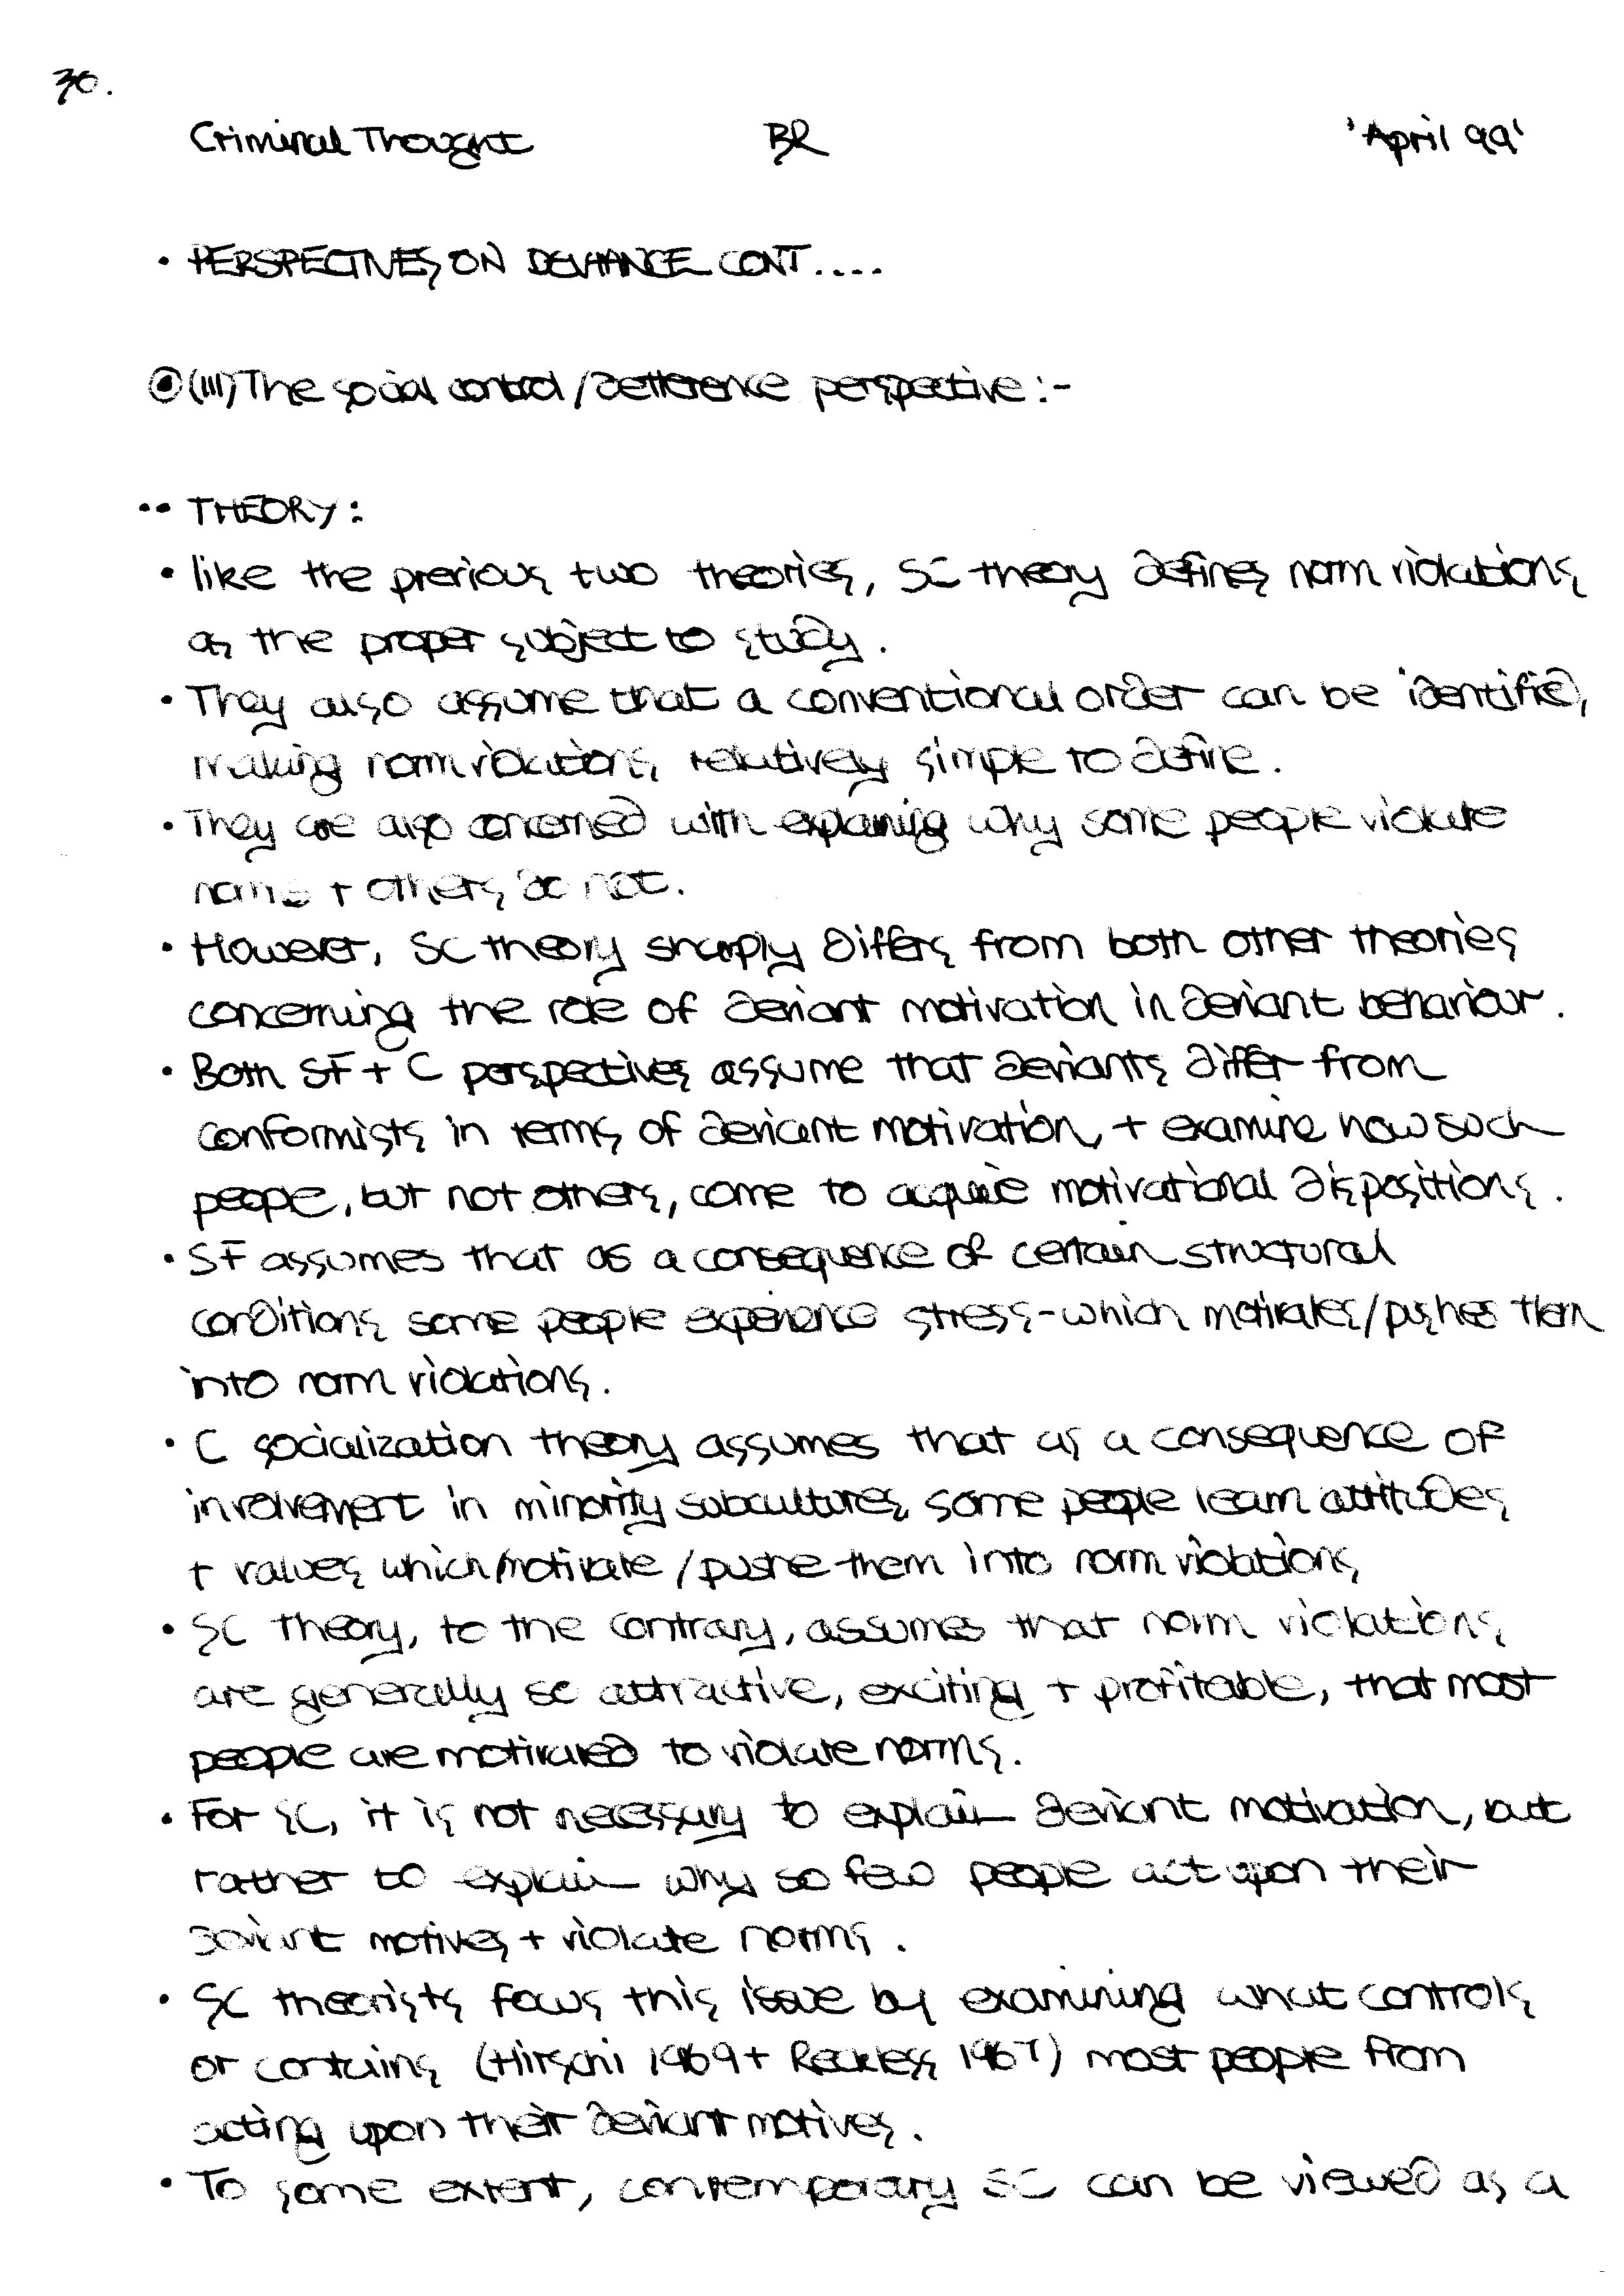 30.
Criminal Thought BR 'April 99'
• PERSPECTIVES ON DEVIANCE CONT....
(III) The social control/deterrence perspective:-
•• THEORY:
• like the previous two theories, SC theory defines norm violations
as the proper subject to study.
• They also assume that a conventional order can be identified,
making norm violations relatively simple to define.
• They are also concerned with explaining why some people violate
norms + others do not.
• However, SC theory sharply differs from both other theories
concerning the role of deviant motivation in deviant behaviour.
• Both SF + C perspectives assume that deviants differ from
conformists in terms of deviant motivation, + examine how such
people, but not others, come to acquire motivational dispositions.
• SF assumes that as a consequence of certain structural
conditions some people experience stress - which motivates/pushes them
into norm violations.
• C socialization theory assumes that as a consequence of
involvement in minority subcultures some people learn attitudes
+ values which motivate/pushe them into norm violations
• SC theory, to the contrary, assumes that norm violations
are generally so attractive, exciting + profitable, that most
people are motivated to violate norms.
• For SC, it is not necessary to explain deviant motivation, but
rather to explain why so few people act upon their
deviant motives + violate norms.
• SC theorists focus this issue by examining what controls
or contains (Hirschi 1969 + Reckless 1967) most people from
acting upon their deviant motives.
• To some extent, contemporary SC can be viewed as a